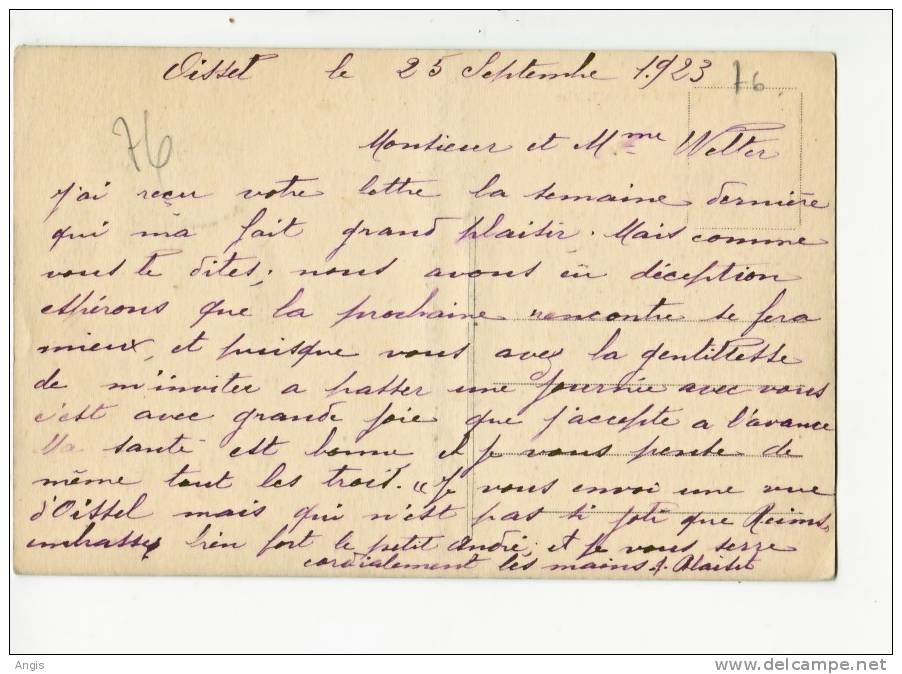 Oissel le 25 Septembre 1923
76
76
Monsieur et Mme Welter
J'ai reçu votre lettre la semaine dernière
qui m'a fait grand plaisir. Mais comme
vous le dites, nous avons eü déception
espérons que la prochaine rencontre se fera
mieux, et puisque vous avez la gentillesse
de m'inviter a passer une journée avec vous
c'est avec grande joie que j'accepte a l'avance
Ma santé est bonne et je vous pense de
même tout les trois. "Je vous envoi une vue
d'Oissel mais qui n'est pas si joli que Reims,
embrassez bien fort le petit André, et je vous serre
cordialement les mains
Angis
http://www.delcampe.net